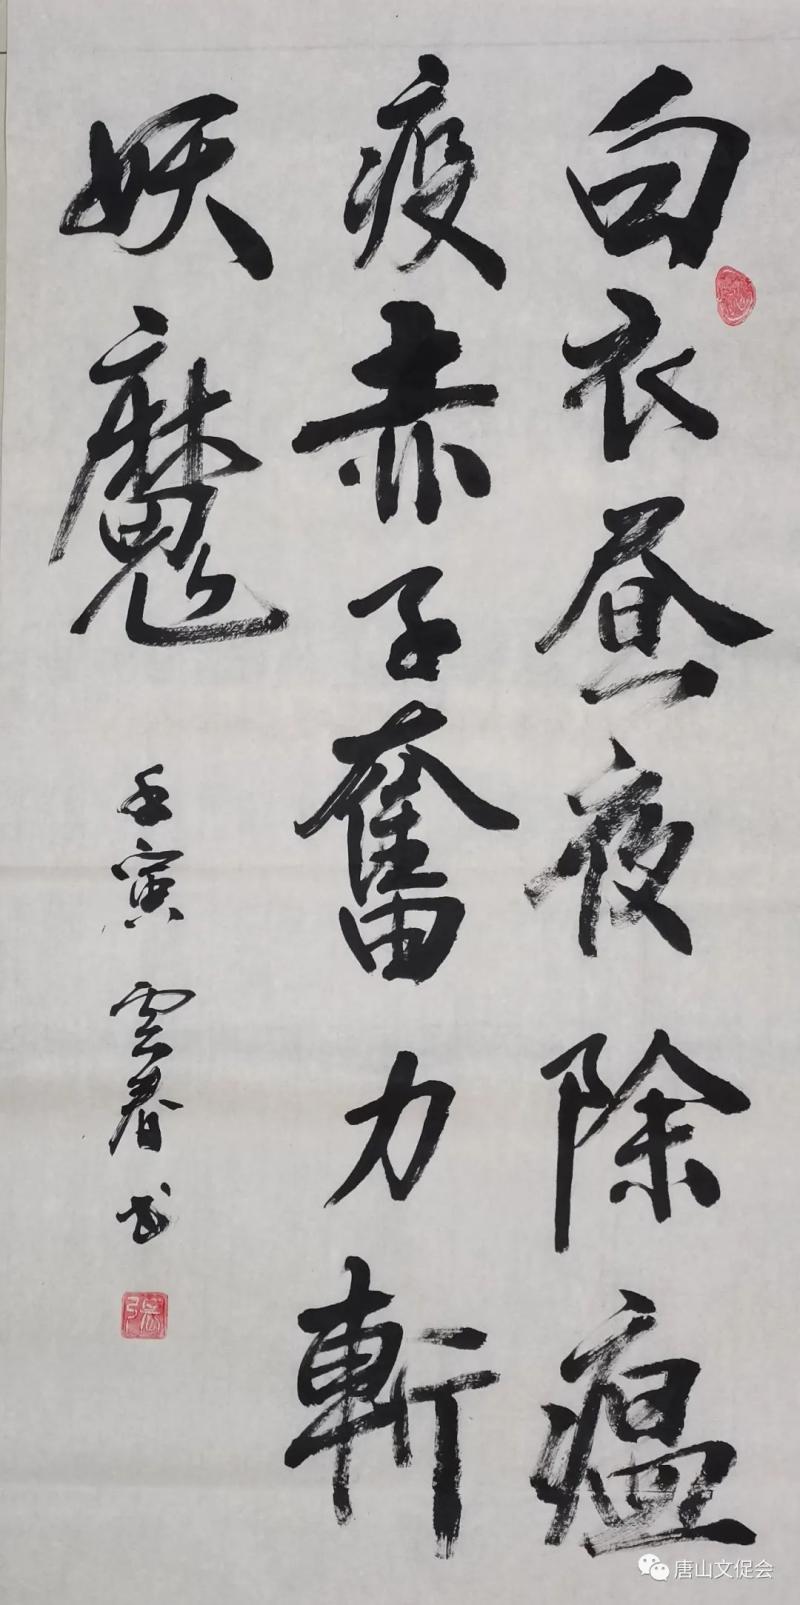 白衣昼夜除瘟
疫赤子奮力斬
妖魔
壬寅 雲春书
張
唐山文促会